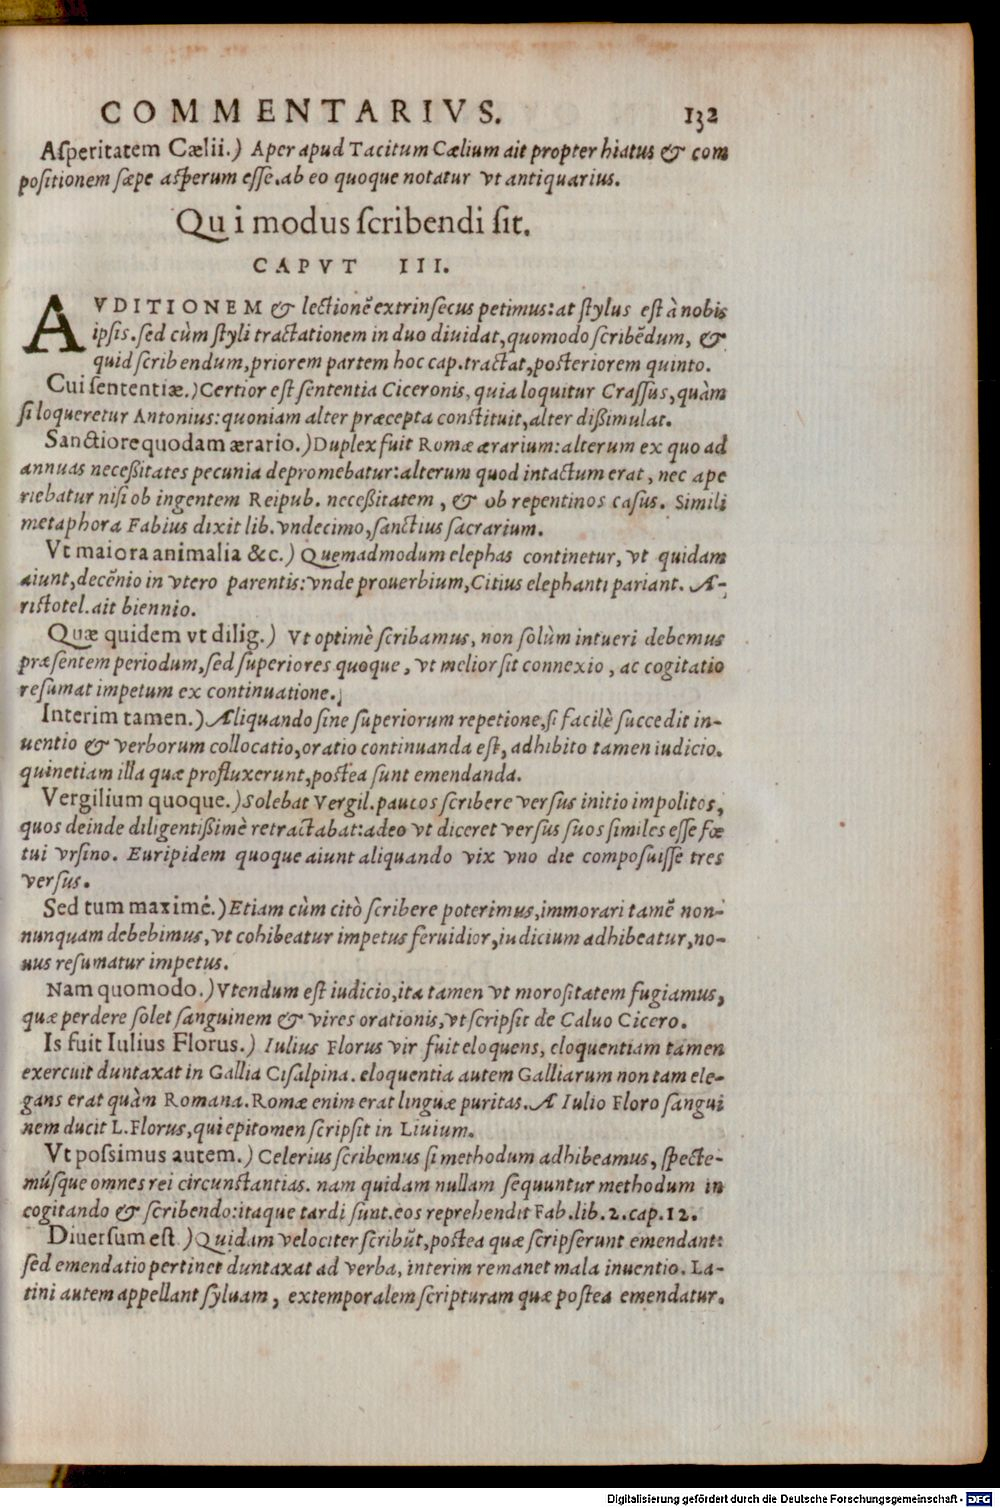 COMMENTARIVS. 132
Aſperitatem Cælii.) Aper apud Tacitum Cælium ait propter hiatus & com
poſitionem ſæpe aſperum eſſe. ab eo quoque notatur vt antiquarius.
Qui modus ſcribendi ſit.
CAPVT III.
AVDITIONEM & lectionẽ extrinſecus petimus: at ſtylus eſt à nobis
ipſis. ſed cùm ſtyli tractationem in duo diuidat, quomodo ſcribẽdum, &
quid ſcribendum, priorem partem hoc cap. tractat, poſteriorem quinto.
Cui ſententiæ.) Certior eſt ſententia Ciceronis, quia loquitur Craſſus, quàm
ſi loqueretur Antonius: quoniam alter præcepta conſtituit, alter dißimulat.
Sanctiore quodam ærario.) Duplex fuit Romæ ærarium: alterum ex quo ad
annuas neceßitates pecunia depromebatur: alterum quod intactum erat, nec ape
riebatur niſi ob ingentem Reipub. neceßitatem, & ob repentinos caſus. Simili
metaphora Fabius dixit lib. vndecimo, ſanctius ſacrarium.
Vt maiora animalia &c.) Quemadmodum elephas continetur, vt quidam
aiunt, decẽnio in vtero parentis: vnde prouerbium, Citius elephanti pariant. A-
riſtotel. ait biennio.
Quæ quidem vt dilig.) Vt optimè ſcribamus, non ſolùm intueri debemus
præſentem periodum, ſed ſuperiores quoque, vt melior ſit connexio, ac cogitatio
reſumat impetum ex continuatione.
Interim tamen.) Aliquando ſine ſuperiorum repetione, ſi facilè ſuccedit in-
uentio & verborum collocatio, oratio continuanda eſt, adhibito tamen iudicio.
quinetiam illa quæ profluxerunt, poſtea ſunt emendanda.
Vergilium quoque.) Solebat Vergil. paucos ſcribere verſus initio impolitos,
quos deinde diligentißimè retractabat: adeo vt diceret verſus ſuos ſimiles eſſe fœ
tui vrſino. Euripidem quoque aiunt aliquando vix vno die compoſuiſſe tres
verſus.
Sed tum maximé.) Etiam cùm citò ſcribere poterimus, immorari tamẽ non-
nunquam debebimus, vt cohibeatur impetus feruidior, iudicium adhibeatur, no-
uus reſumatur impetus.
Nam quomodo.) Vtendum eſt iudicio, ita tamen vt moroſitatem fugiamus,
quæ perdere ſolet ſanguinem & vires orationis, vt ſcripſit de Caluo Cicero.
Is fuit Iulius Florus.) Iulius Florus vir fuit eloquens, eloquentiam tamen
exercuit duntaxat in Gallia Ciſalpina. eloquentia autem Galliarum non tam ele-
gans erat quàm Romana. Romæ enim erat linguæ puritas. A Iulio Floro ſangui
nem ducit L. Florus, qui epitomen ſcripſit in Liuium.
Vt poſsimus autem.) Celerius ſcribemus ſi methodum adhibeamus, ſpecte-
múſque omnes rei circunſtantias. nam quidam nullam ſequuntur methodum in
cogitando & ſcribendo: itaque tardi ſunt. eos reprehendit Fab. lib. 2. cap. 12.
Diuerſum eſt.) Quidam velociter ſcribũt, poſtea quæ ſcripſerunt emendant:
ſed emendatio pertinet duntaxat ad verba, interim remanet mala inuentio. La-
tini autem appellant ſyluam, extemporalem ſcripturam quæ poſtea emendatur.
Digitalisierung gefördert durch die Deutsche Forschungsgemeinschaft - DFG